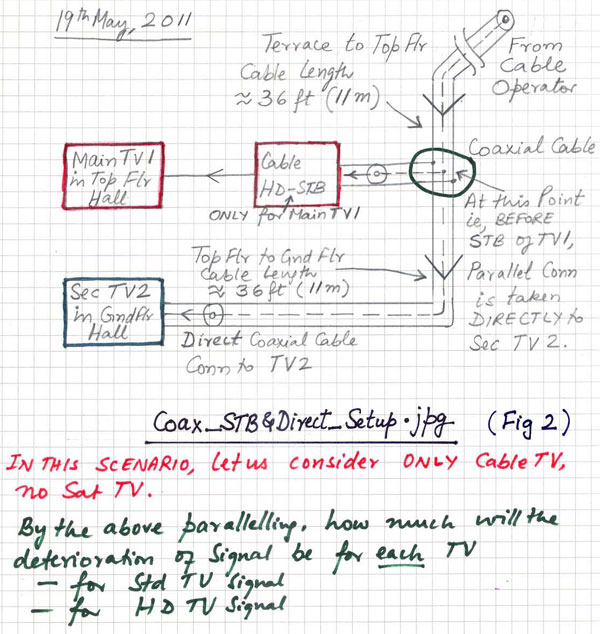 19th May, 2011
Terrace to Top Flr
Cable Length
≈ 36 ft (11m)
From
Cable
Operator
Main TV1
in Top Flr
Hall
Cable
HD-STB
ONLY for Main TV1
Coaxial Cable
At this Point
ie, BEFORE
STB of TV1,
Parallel Conn
is taken
DIRECTLY to
Sec TV 2.
Top Flr to Gnd Flr
Cable Length
≈ 36 ft (11m)
Sec TV2
in Gnd Flr
Hall
Direct Coaxial Cable
Conn to TV2
Coax_STB&Direct_Setup.jpg (Fig 2)
IN THIS SCENARIO, Let us consider ONLY Cable TV,
no Sat TV.
By the above parallelling, how much will the
deterioration of Signal be for each TV
— for Std TV Signal
— for HD TV Signal